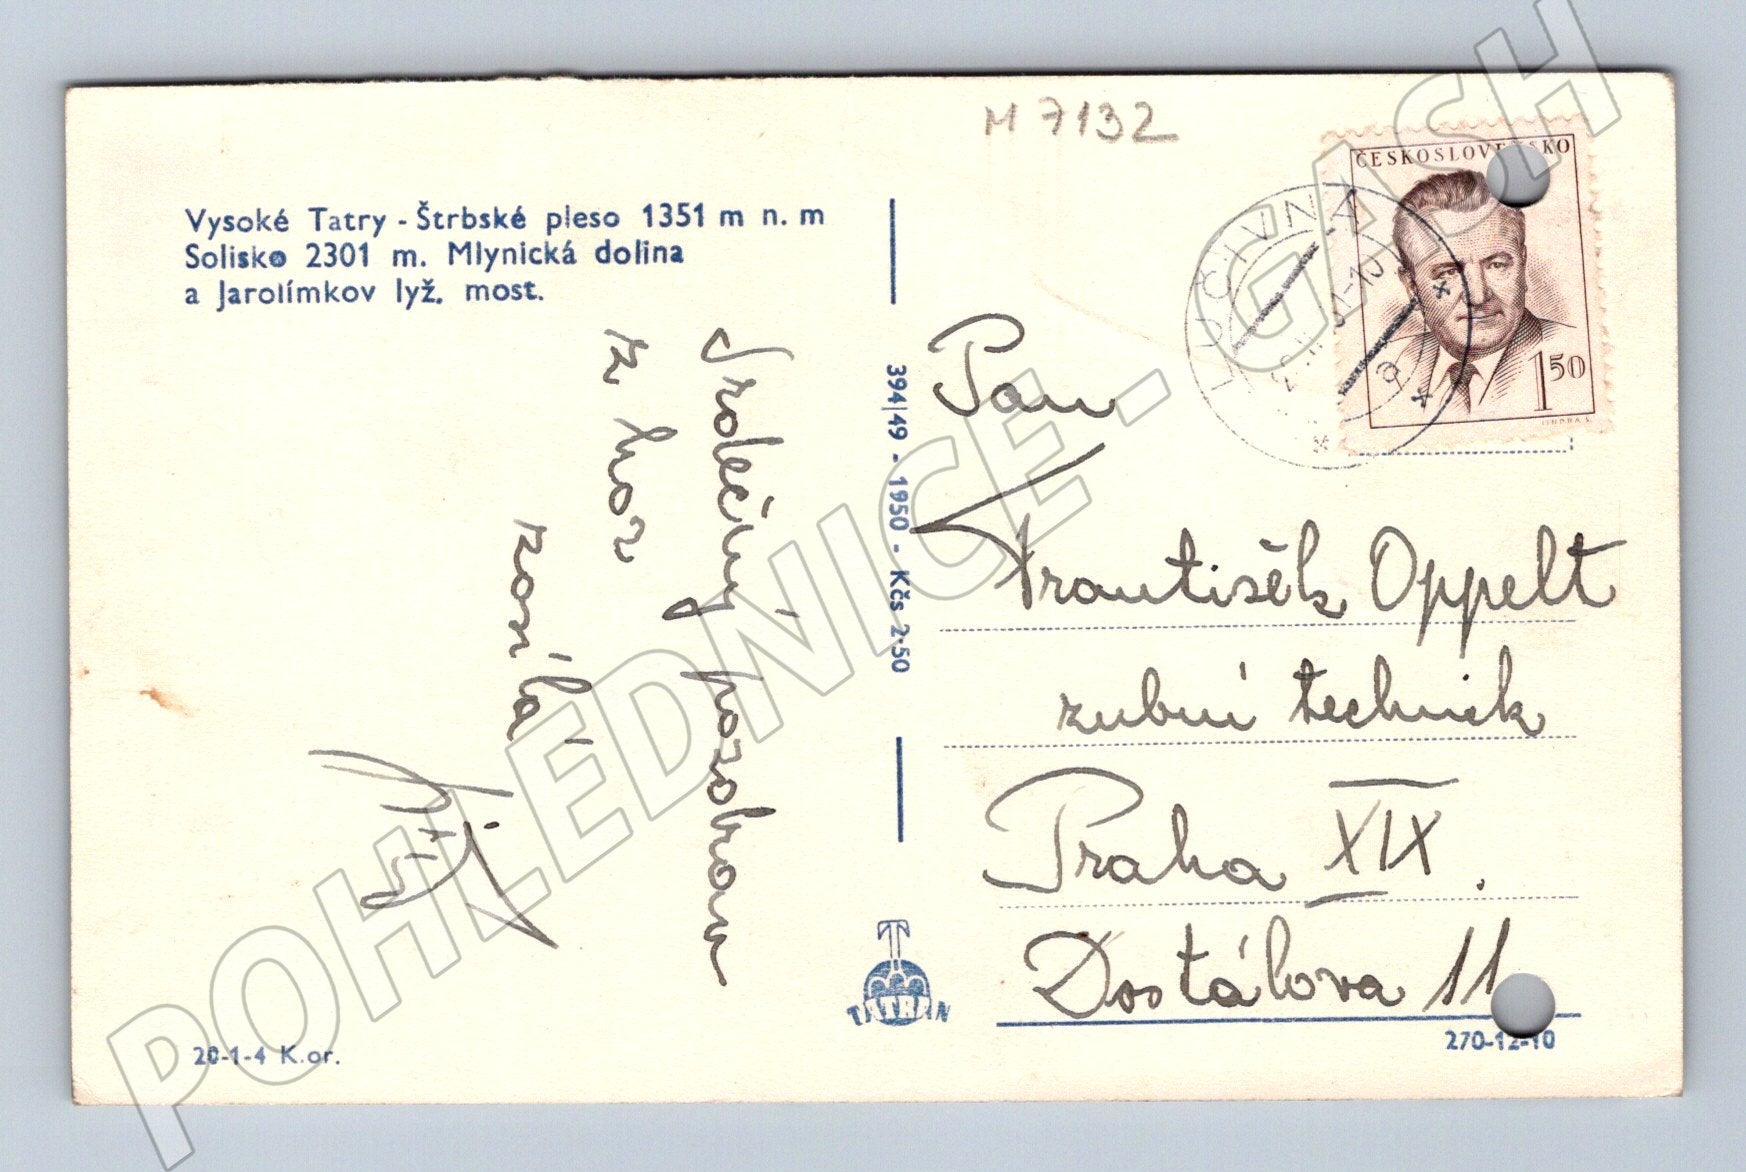 M 7132
Vysoké Tatry - Štrbské pleso 1351 m n. m
Solisko 2301 m. Mlynická dolina
a Jarolímkov lyž. most.
Srdečný pozdrav
z hor
zasílá
394/49 - 1950 - Kčs 2·50
ČESKOSLOVENSKO
1 50
LUČIVNÁ
Pan
František Oppelt
zubní technik
Praha XIX.
Dostálova 11
TATRAN
20-1-4 K.or.
270-12-10
POHLEDNICE - GASH